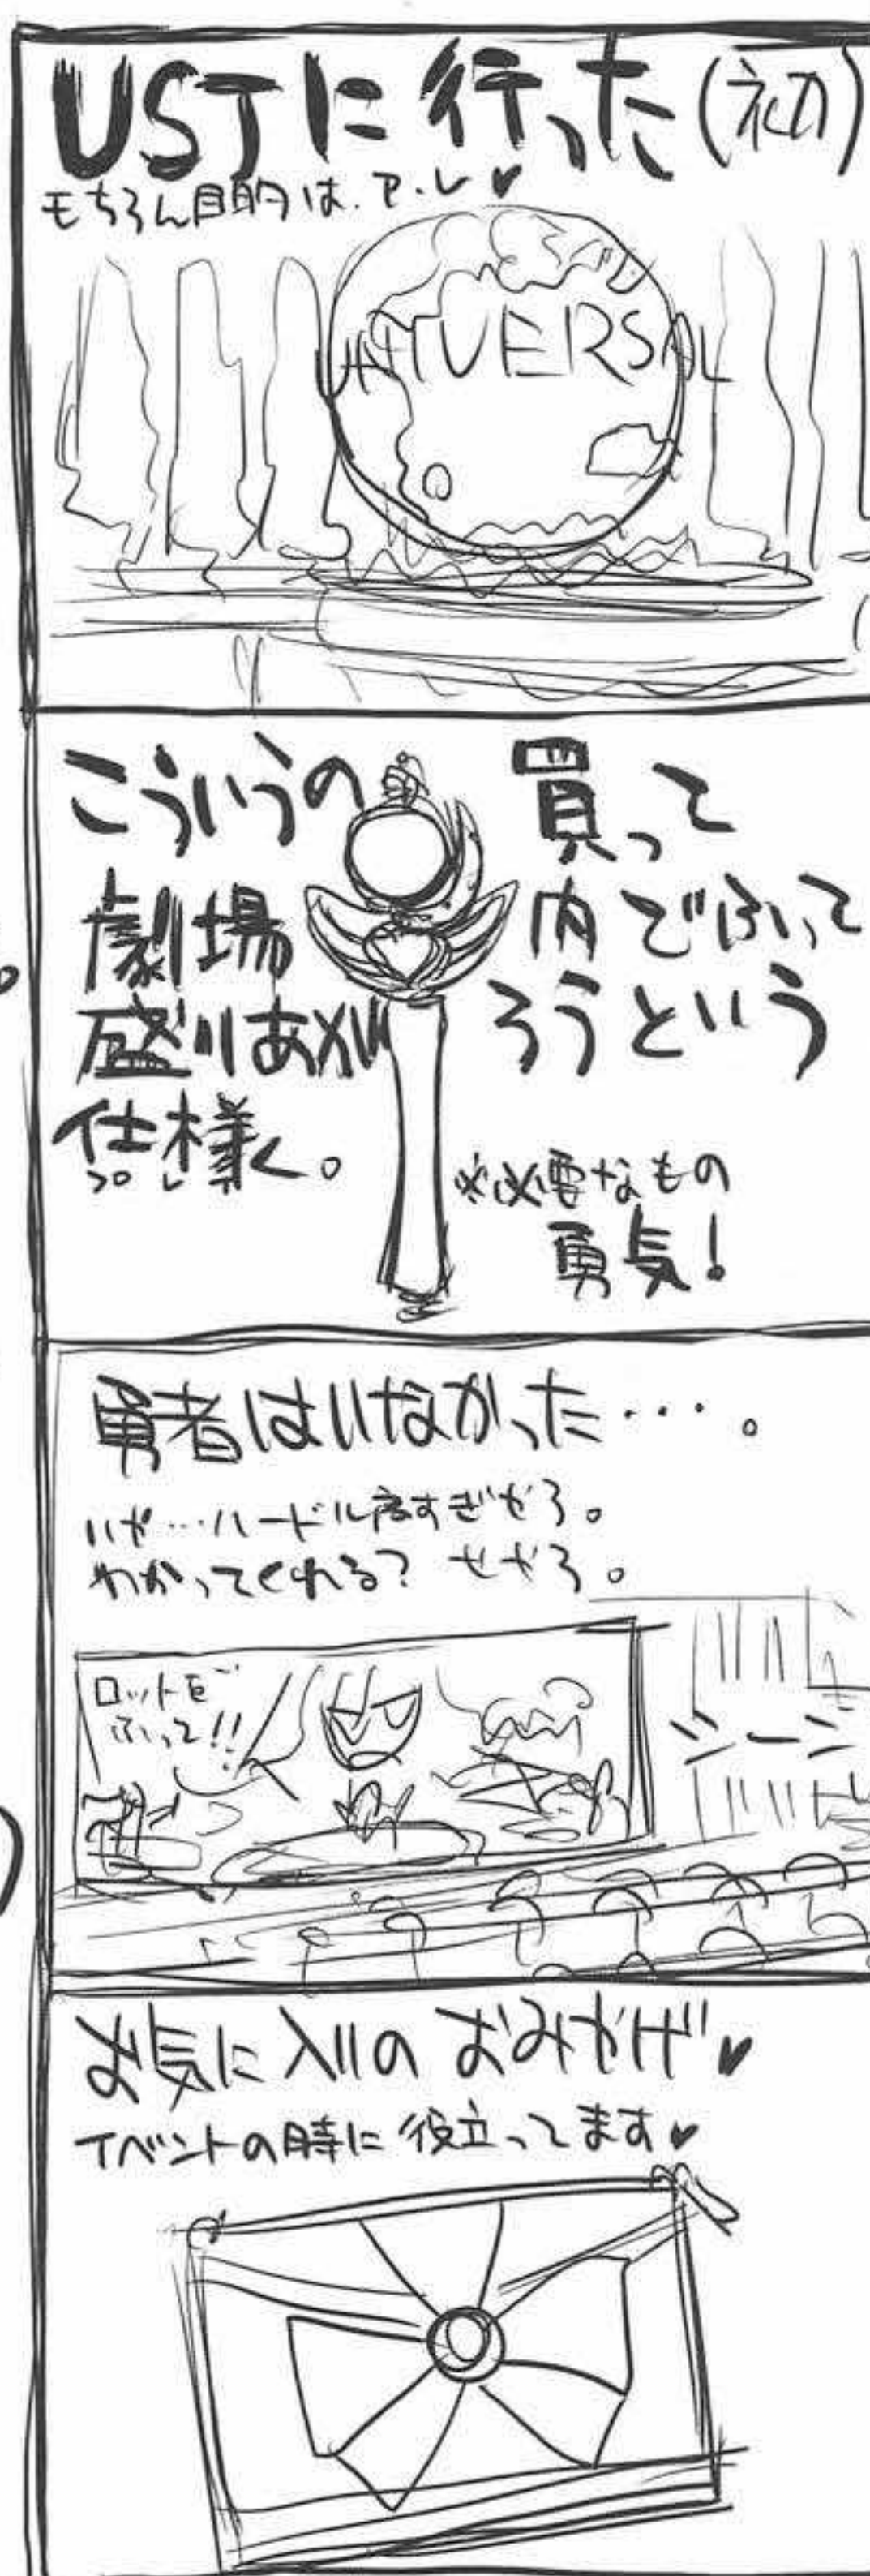 USJに行った(初)
もちろん目的は、ア・レ♥
UNIVERSAL
こういうの 買って
劇場 内でふって
盛りあがろうという
仕様く。
※必要なもの
勇気!
勇者はいなかった…。
いや…ハードル高すぎやろ。
わかってくれる? せやろ。
ロットを
ふって!!
シーン
お気に入りのおみやげ♥
イベントの時に役立ってます♥